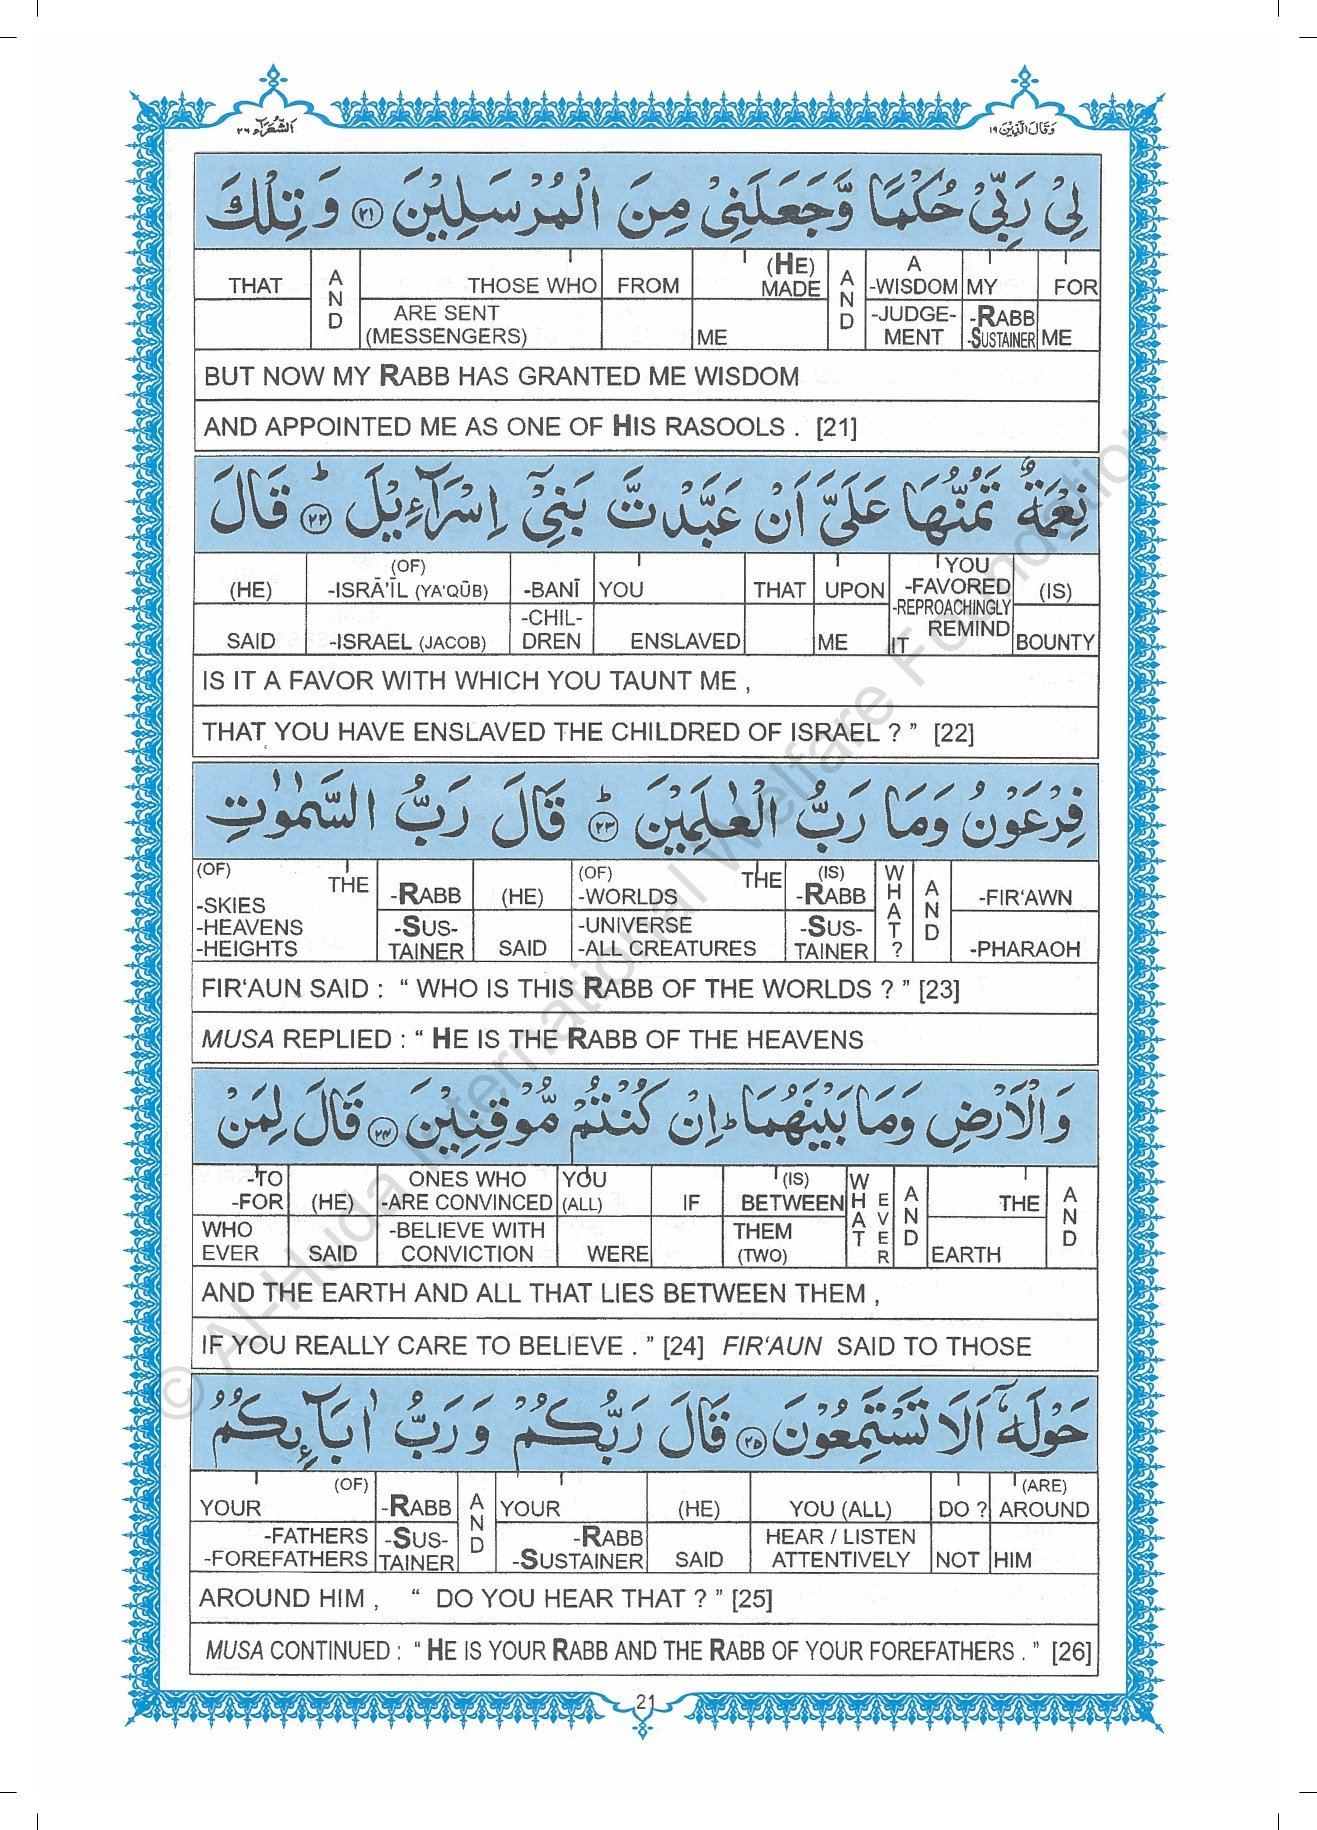 الشعراء ٢٦
وقال الذين ١٩
لِيْ رَبِّيْ حُكْمًا وَّجَعَلَنِيْ مِنَ الْمُرْسَلِيْنَ ٢١ وَتِلْكَ
THAT AND THOSE WHO FROM (HE) MADE AND A -WISDOM MY FOR
ARE SENT (MESSENGERS) ME -JUDGEMENT -RABB -SUSTAINER ME
BUT NOW MY RABB HAS GRANTED ME WISDOM
AND APPOINTED ME AS ONE OF HIS RASOOLS . [21]
نِعْمَةٌ تَمُنُّهَا عَلَيَّ اَنْ عَبَّدْتَّ بَنِيْٓ اِسْرَآءِيْلَ ؕ ٢٢ قَالَ
(HE) (OF) -ISRĀ’ĪL (YA‘QŪB) -BANĪ YOU THAT UPON YOU -FAVORED -REPROACHINGLY (IS)
SAID -ISRAEL (JACOB) -CHILDREN ENSLAVED ME REMIND IT BOUNTY
IS IT A FAVOR WITH WHICH YOU TAUNT ME ,
THAT YOU HAVE ENSLAVED THE CHILDRED OF ISRAEL ? ” [22]
فِرْعَوْنُ وَمَا رَبُّ الْعٰلَمِيْنَ ؕ ٢٣ قَالَ رَبُّ السَّمٰوٰتِ
(OF) THE -RABB (HE) (OF) -WORLDS THE (IS) -RABB WHAT? AND -FIR‘AWN
-SKIES -HEAVENS -HEIGHTS -SUSTAINER SAID -UNIVERSE -ALL CREATURES -SUSTAINER -PHARAOH
FIR‘AUN SAID : “ WHO IS THIS RABB OF THE WORLDS ? ” [23]
MUSA REPLIED : “ HE IS THE RABB OF THE HEAVENS
وَالْاَرْضِ وَمَا بَيْنَهُمَا ؕ اِنْ كُنْتُمْ مُّوْقِنِيْنَ ٢٤ قَالَ لِمَنْ
-TO -FOR (HE) ONES WHO -ARE CONVINCED YOU (ALL) IF (IS) BETWEEN WHAT EVER AND THE AND
WHO EVER SAID -BELIEVE WITH CONVICTION WERE THEM (TWO) EARTH
AND THE EARTH AND ALL THAT LIES BETWEEN THEM ,
IF YOU REALLY CARE TO BELIEVE . ” [24] FIR‘AUN SAID TO THOSE
حَوْلَهٗٓ اَلَا تَسْتَمِعُوْنَ ٢٥ قَالَ رَبُّكُمْ وَرَبُّ اٰبَآئِكُمُ
YOUR (OF) -RABB AND YOUR (HE) YOU (ALL) DO ? (ARE) AROUND
-FATHERS -FOREFATHERS -SUSTAINER -RABB -SUSTAINER SAID HEAR / LISTEN ATTENTIVELY NOT HIM
AROUND HIM , “ DO YOU HEAR THAT ? ” [25]
MUSA CONTINUED : “ HE IS YOUR RABB AND THE RABB OF YOUR FOREFATHERS . ” [26]
21
© Al-Huda International Welfare Foundation